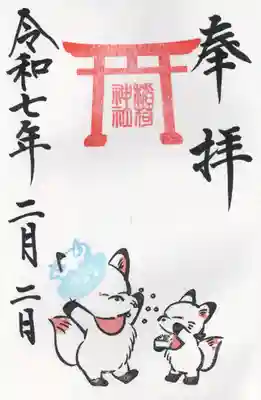 奉拝
稲荷
神社
令和七年 二月二日